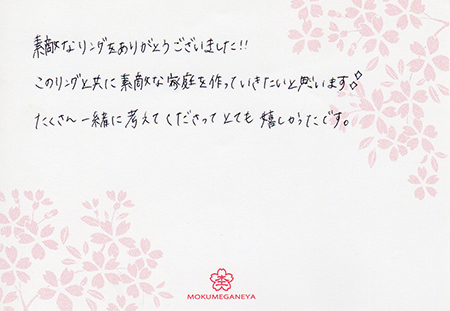 素敵なリングをありがとうございました!!
このリングと共に素敵な家庭を作っていきたいと思います♢♢
たくさん一緒に考えてくださってとても嬉しかったです。
MOKUMEGANEYA